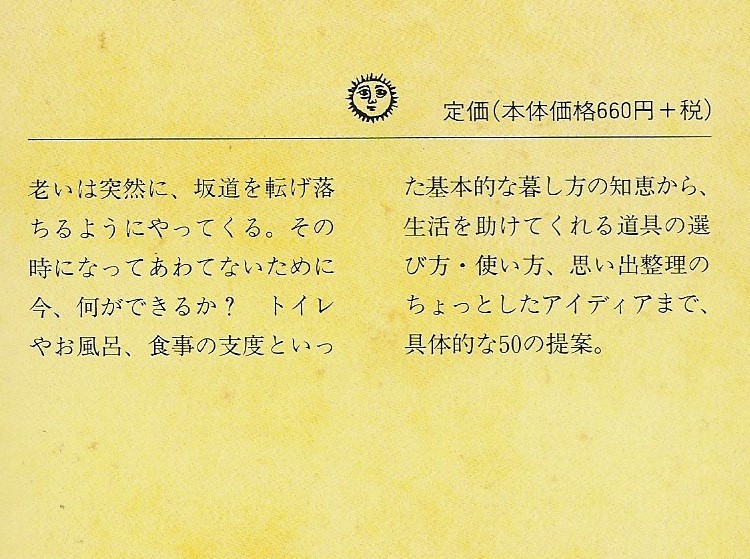 定価（本体価格660円＋税）
老いは突然に、坂道を転げ落
ちるようにやってくる。その
時になってあわてないために
今、何ができるか？　トイレ
やお風呂、食事の支度といっ
た基本的な暮し方の知恵から、
生活を助けてくれる道具の選
び方・使い方、思い出整理の
ちょっとしたアイディアまで、
具体的な50の提案。